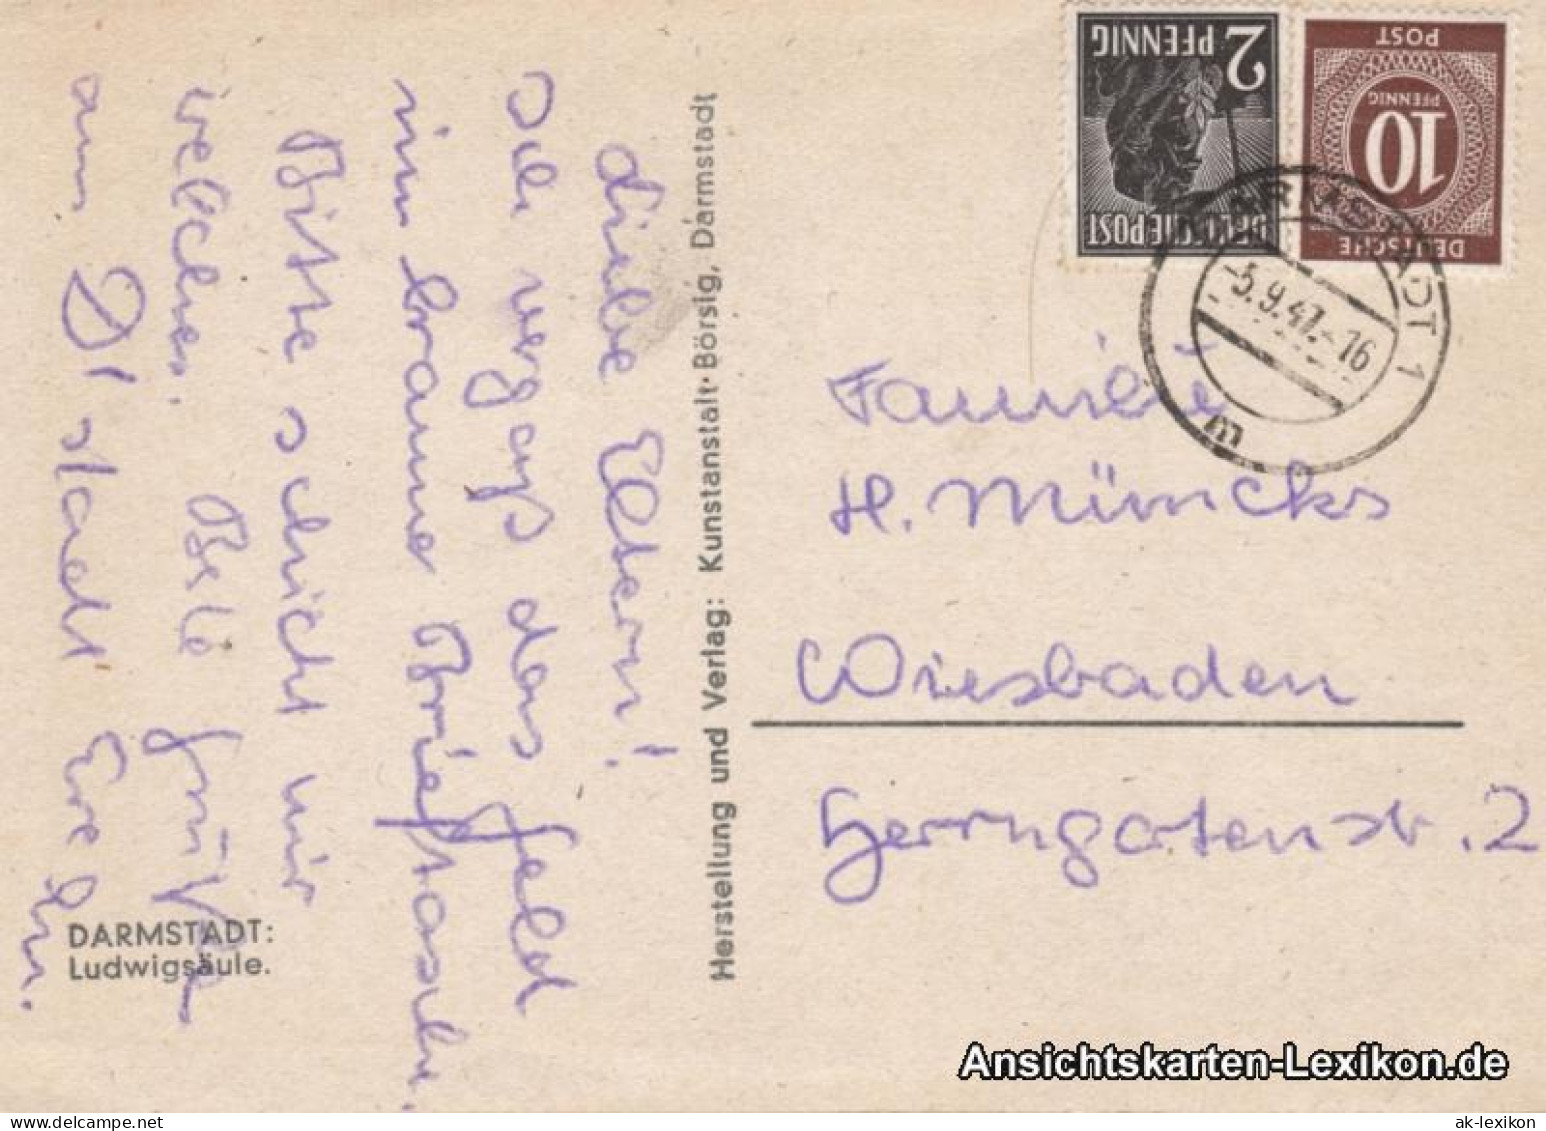 Liebe Eltern!
Ich vergaß das Geld
im braune Brieftasche.
Bitte schickt mir
welches. Viele Grüße
aus D'stadt
DARMSTADT:
Ludwigsäule.
Herstellung und Verlag: Kunstanstalt Börsig, Darmstadt
2 PFENNIG
DEUTSCHE POST
DEUTSCHE
10
PFENNIG
POST
DARMSTADT 1
-5.9.47.-16
w
Familie
H. Müncks
Wiesbaden
Herrngartenstr. 2
Ansichtskarten-Lexikon.de
ak-lexikon
delcampe.net